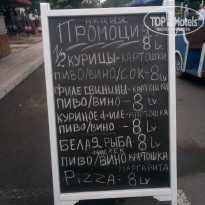 TopHotels
АКЦИЯ
ПРОМОЦИЯ
1/2 КУРИЦЫ+КАРТОШКИ
ПИВО/ВИНО/СОК-8 Lv
ФИЛЕ СВИНИНЫ+КАРТОШКИ
ПИВО/ВИНО - 8 Lv
КУРИНОЕ ФИЛЕ+КАРТОШКИ
ПИВО/ВИНО - 8 Lv
БЕЛАЯ РЫБА - 8 Lv
ПИВО/ВИНО КАРТОШКА
МАРГАРИТА
PIZZA - 8 Lv